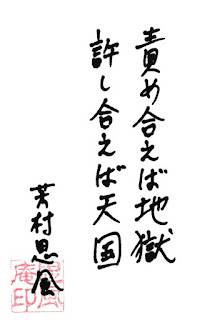 責め合えば地獄
許し合えば天国
芳村思風
思風庵印